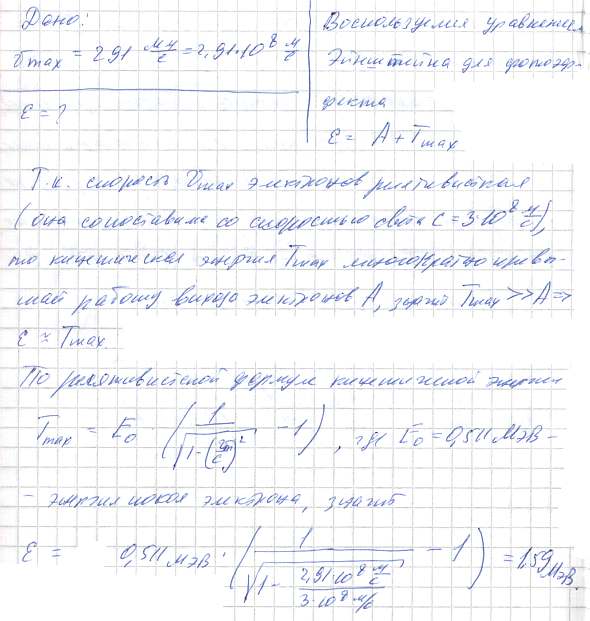 Дано:
υmax = 291 Мм/с = 2,91·10⁸ м/с
ε = ?
Воспользуемся уравнением
Эйнштейна для фотоэф-
фекта
ε = A + Tmax
Т.к. скорость υmax электронов релятивисткая
(она сопоставима со скоростью света c = 3·10⁸ м/с),
то кинетическая энергия Tmax многократно превы-
шает работу выхода электронов A, значит Tmax >> A =>
ε ≈ Tmax.
По релятивисткой формуле кинетической энергии
Tmax = E₀ · (1/√(1-(υm/c)²) - 1), где E₀ = 0,511 МэВ -
- энергия покоя электрона, значит
ε = 0,511 МэВ · (1/√(1 - 2,91·10⁸ м/с / 3·10⁸ м/с) - 1) = 1,59 МэВ.